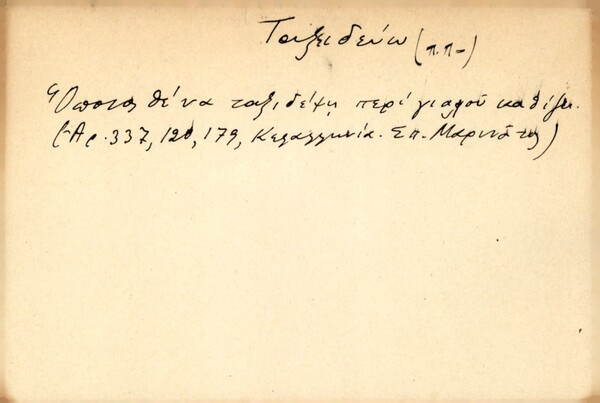 Ταξιδεύω (π.π-)
Ὅποιος θέ να ταξιδέψῃ περί γιαλοῦ καθίζει.
(Ἀρ. 337, 120, 179, Κεφαλληνία. Σπ. Μαρινᾶτος)